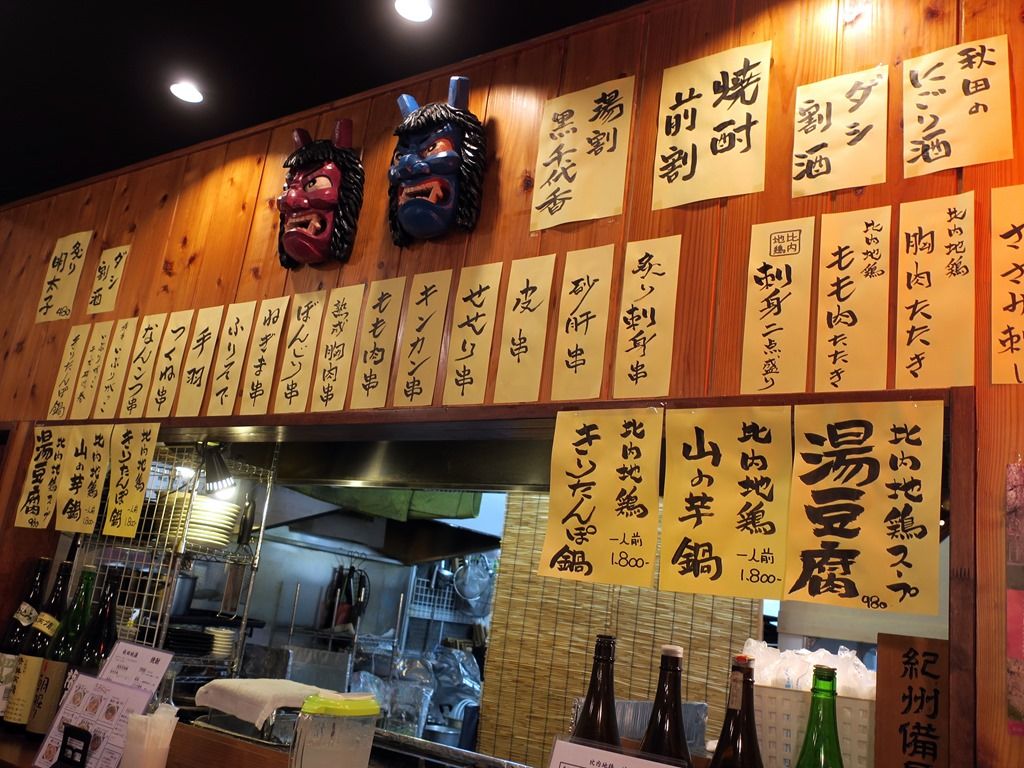 秋田の
にごり酒
ダシ
割酒
焼酎
前割
湯割
黒千代香
炙り
明太子
980
ダシ
割酒
比内地鶏
胸肉たたき
比内地鶏
もも肉たたき
比内
地鶏
刺身二点盛り
炙り刺身串
砂肝串
皮串
せせり串
キンカン串
もも肉串
熟成胸肉串
ぼんじり串
ねぎま串
ふりそで
手羽
つくね串
なんこつ串
きりたんぽ鍋
比内地鶏スープ
湯豆腐
980
比内地鶏
山の芋鍋
一人前
1.800-
比内地鶏
きりたんぽ鍋
一人前
1.800-
比内地鶏
きりたんぽ鍋
一人前
1.800
比内地鶏
山の芋鍋
一人前
1.800
比内地鶏スープ
湯豆腐
980
紀州備